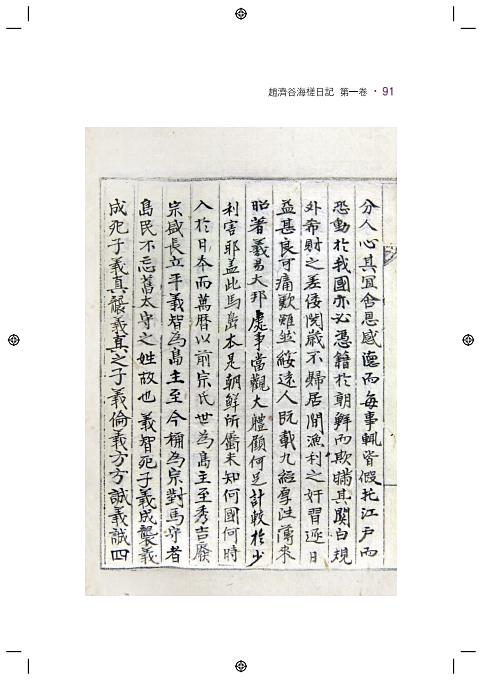 趙濟谷海槎日記 第一卷 · 91
分人心其宜含恩感德而每事輒皆假托江戶而
恐動於我國亦必憑籍於朝鮮而欺瞞其関白規
外希財之差倭閱歲不歸居間漁利之奸習逐日
益甚良可痛歎雖並綏遠人既載九經厚往薄來
昭著羲易大邦處事當觀大軆顧何足計較於少
利害耶盖此馬島本是朝鮮所屬未知何國何時
入於日本而萬曆以前宗氏世為島主至秀吉廢
宗盛長立平義智為島主至今稱為宗對馬守者
島民不忘舊太守之姓故也 義智死子義成襲義
成死子義真襲義真之子義倫義方方誠義誠四